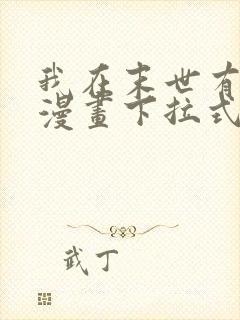 我在末世有
漫畫下拉式
武丁